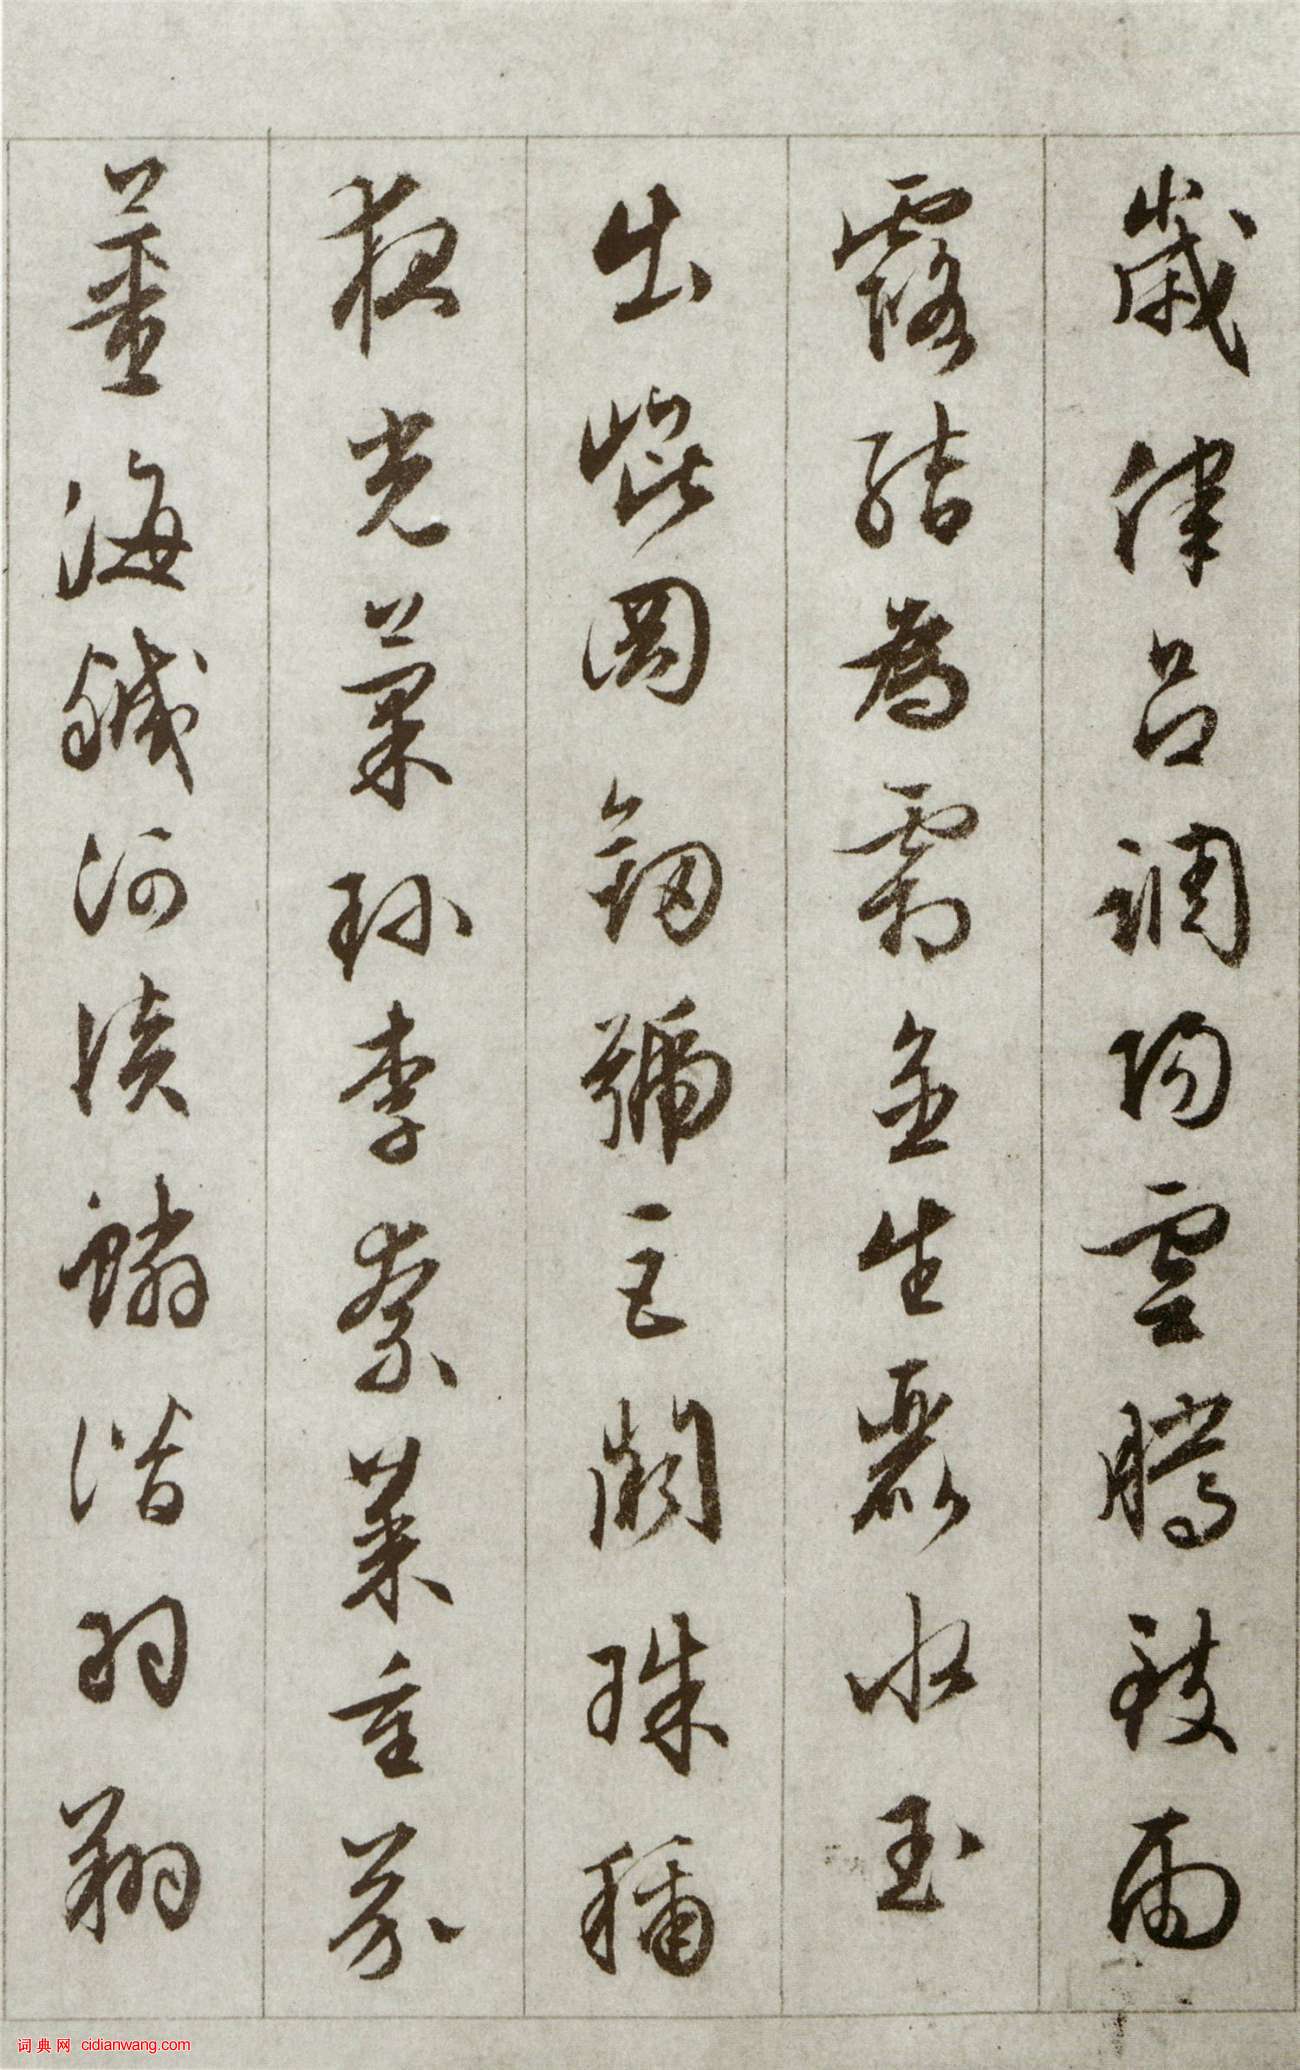 歲律呂調陽雲騰致雨
露結為霜金生麗水玉
出崐岡劔號巨闕珠稱
夜光菓珎李柰菜重芥
薑海鹹河淡鱗潛羽翔
词典网 cidianwang.com